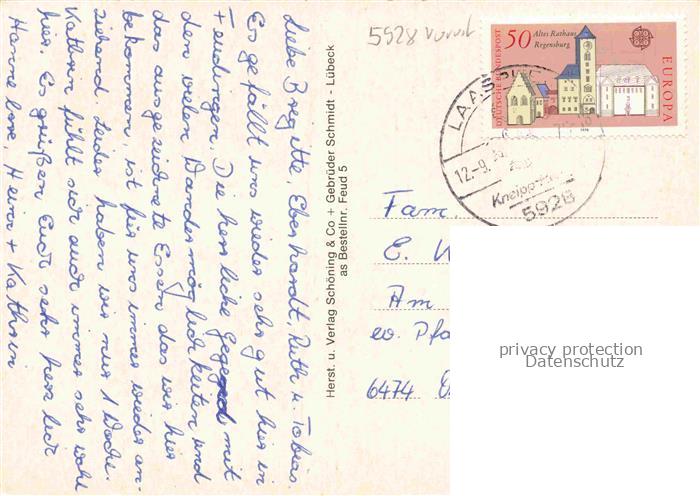 Liebe Brigitte, Eberhardt, Ruth u. Tobias.
Es gefällt uns wieder sehr gut hier in
Feudingen. Die herrliche Gegend mit
den vielen Wandermöglichkeiten und
das ausgezeichnete Essen das wir hier
bekommen, ist für uns immer wieder an-
ziehend. Leider haben wir nur 1 Woche.
Kathrin fühlt sich auch immer sehr wohl
hier. Es grüßen Euch sehr herzlich
Hannelore, Heinz + Kathrin
Herst. u. Verlag Schöning & Co + Gebrüder Schmidt - Lübeck
as Bestellnr. Feud 5
5928
50 Altes Rathaus
Regensburg
DEUTSCHE BUNDESPOST
EUROPA
1978
LAAS
12.-9.
Kneipp
5928
Fam.
E.
Am
ev.
6474
privacy protection
Datenschutz